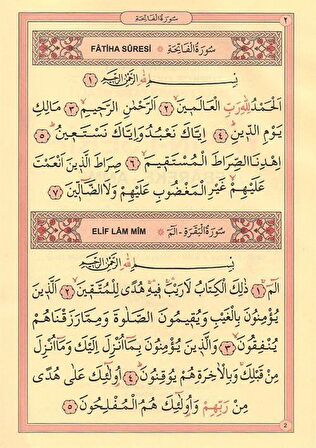 سُورَةُ الْفَاتِحَةِ ٢
FÂTİHA SÛRESİ سُورَةُ الْفَاتِحَةِ
بِسْمِ اللّٰهِ الرَّحْمٰنِ الرَّحِيمِ ﴿١﴾
اَلْحَمْدُ لِلّٰهِ رَبِّ الْعَالَمِينَ ﴿٢﴾ اَلرَّحْمٰنِ الرَّحِيمِ ﴿٣﴾ مَالِكِ
يَوْمِ الدِّينِ ﴿٤﴾ اِيَّاكَ نَعْبُدُ وَاِيَّاكَ نَسْتَعِينُ ﴿٥﴾
اِهْدِنَا الصِّرَاطَ الْمُسْتَقِيمَ ﴿٦﴾ صِرَاطَ الَّذِينَ اَنْعَمْتَ
عَلَيْهِمْ غَيْرِ الْمَغْضُوبِ عَلَيْهِمْ وَلَا الضَّالِّينَ ﴿٧﴾
ELİF LÂM MÎM سُورَةُ الْبَقَرَةِ - الٓمٓ
بِسْمِ اللّٰهِ الرَّحْمٰنِ الرَّحِيمِ
الٓمٓ ﴿١﴾ ذٰلِكَ الْكِتَابُ لَا رَيْبَ فِيهِ هُدًى لِلْمُتَّقِينَ ﴿٢﴾ اَلَّذِينَ
يُؤْمِنُونَ بِالْغَيْبِ وَيُقِيمُونَ الصَّلٰوةَ وَمِمَّا رَزَقْنَاهُمْ
يُنْفِقُونَ ﴿٣﴾ وَالَّذِينَ يُؤْمِنُونَ بِمَا اُنْزِلَ اِلَيْكَ وَمَا اُنْزِلَ
مِنْ قَبْلِكَ وَبِالْاٰخِرَةِ هُمْ يُوقِنُونَ ﴿٤﴾ اُولٰئِكَ عَلٰى هُدًى
مِنْ رَبِّهِمْ وَاُولٰئِكَ هُمُ الْمُفْلِحُونَ ﴿٥﴾
2